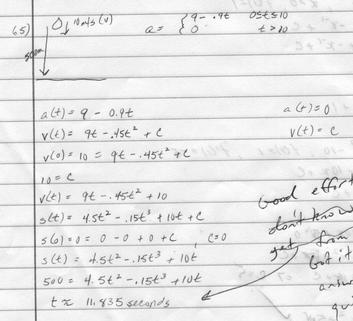 65) 10 m/s (v) a = { 9 - .9t 0≤t≤10
0 t>10
500m
a(t) = 9 - 0.9t a(t)=0
v(t) = 9t - .45t² + C v(t) = C
v(0) = 10 = 9t - .45t² + C
10 = C
v(t) = 9t - .45t² + 10
s(t) = 4.5t² - .15t³ + 10t + C
s(0) = 0 = 0 - 0 + 0 + C, C=0
s(t) = 4.5t² - .15t³ + 10t
500 = 4.5t² - .15t³ + 10t
t ≈ 11.835 seconds
Good effort
don't know
get from
Got it
answ